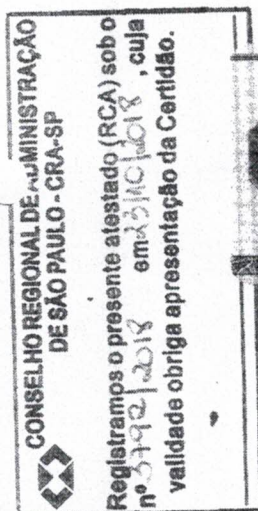 CONSELHO REGIONAL DE ADMINISTRAÇÃO
DE SÃO PAULO - CRA-SP
Registramos o presente atestado (RCA) sob o
nº 3792/2018 em 23/10/2018, cuja
validade obriga apresentação da Certidão.